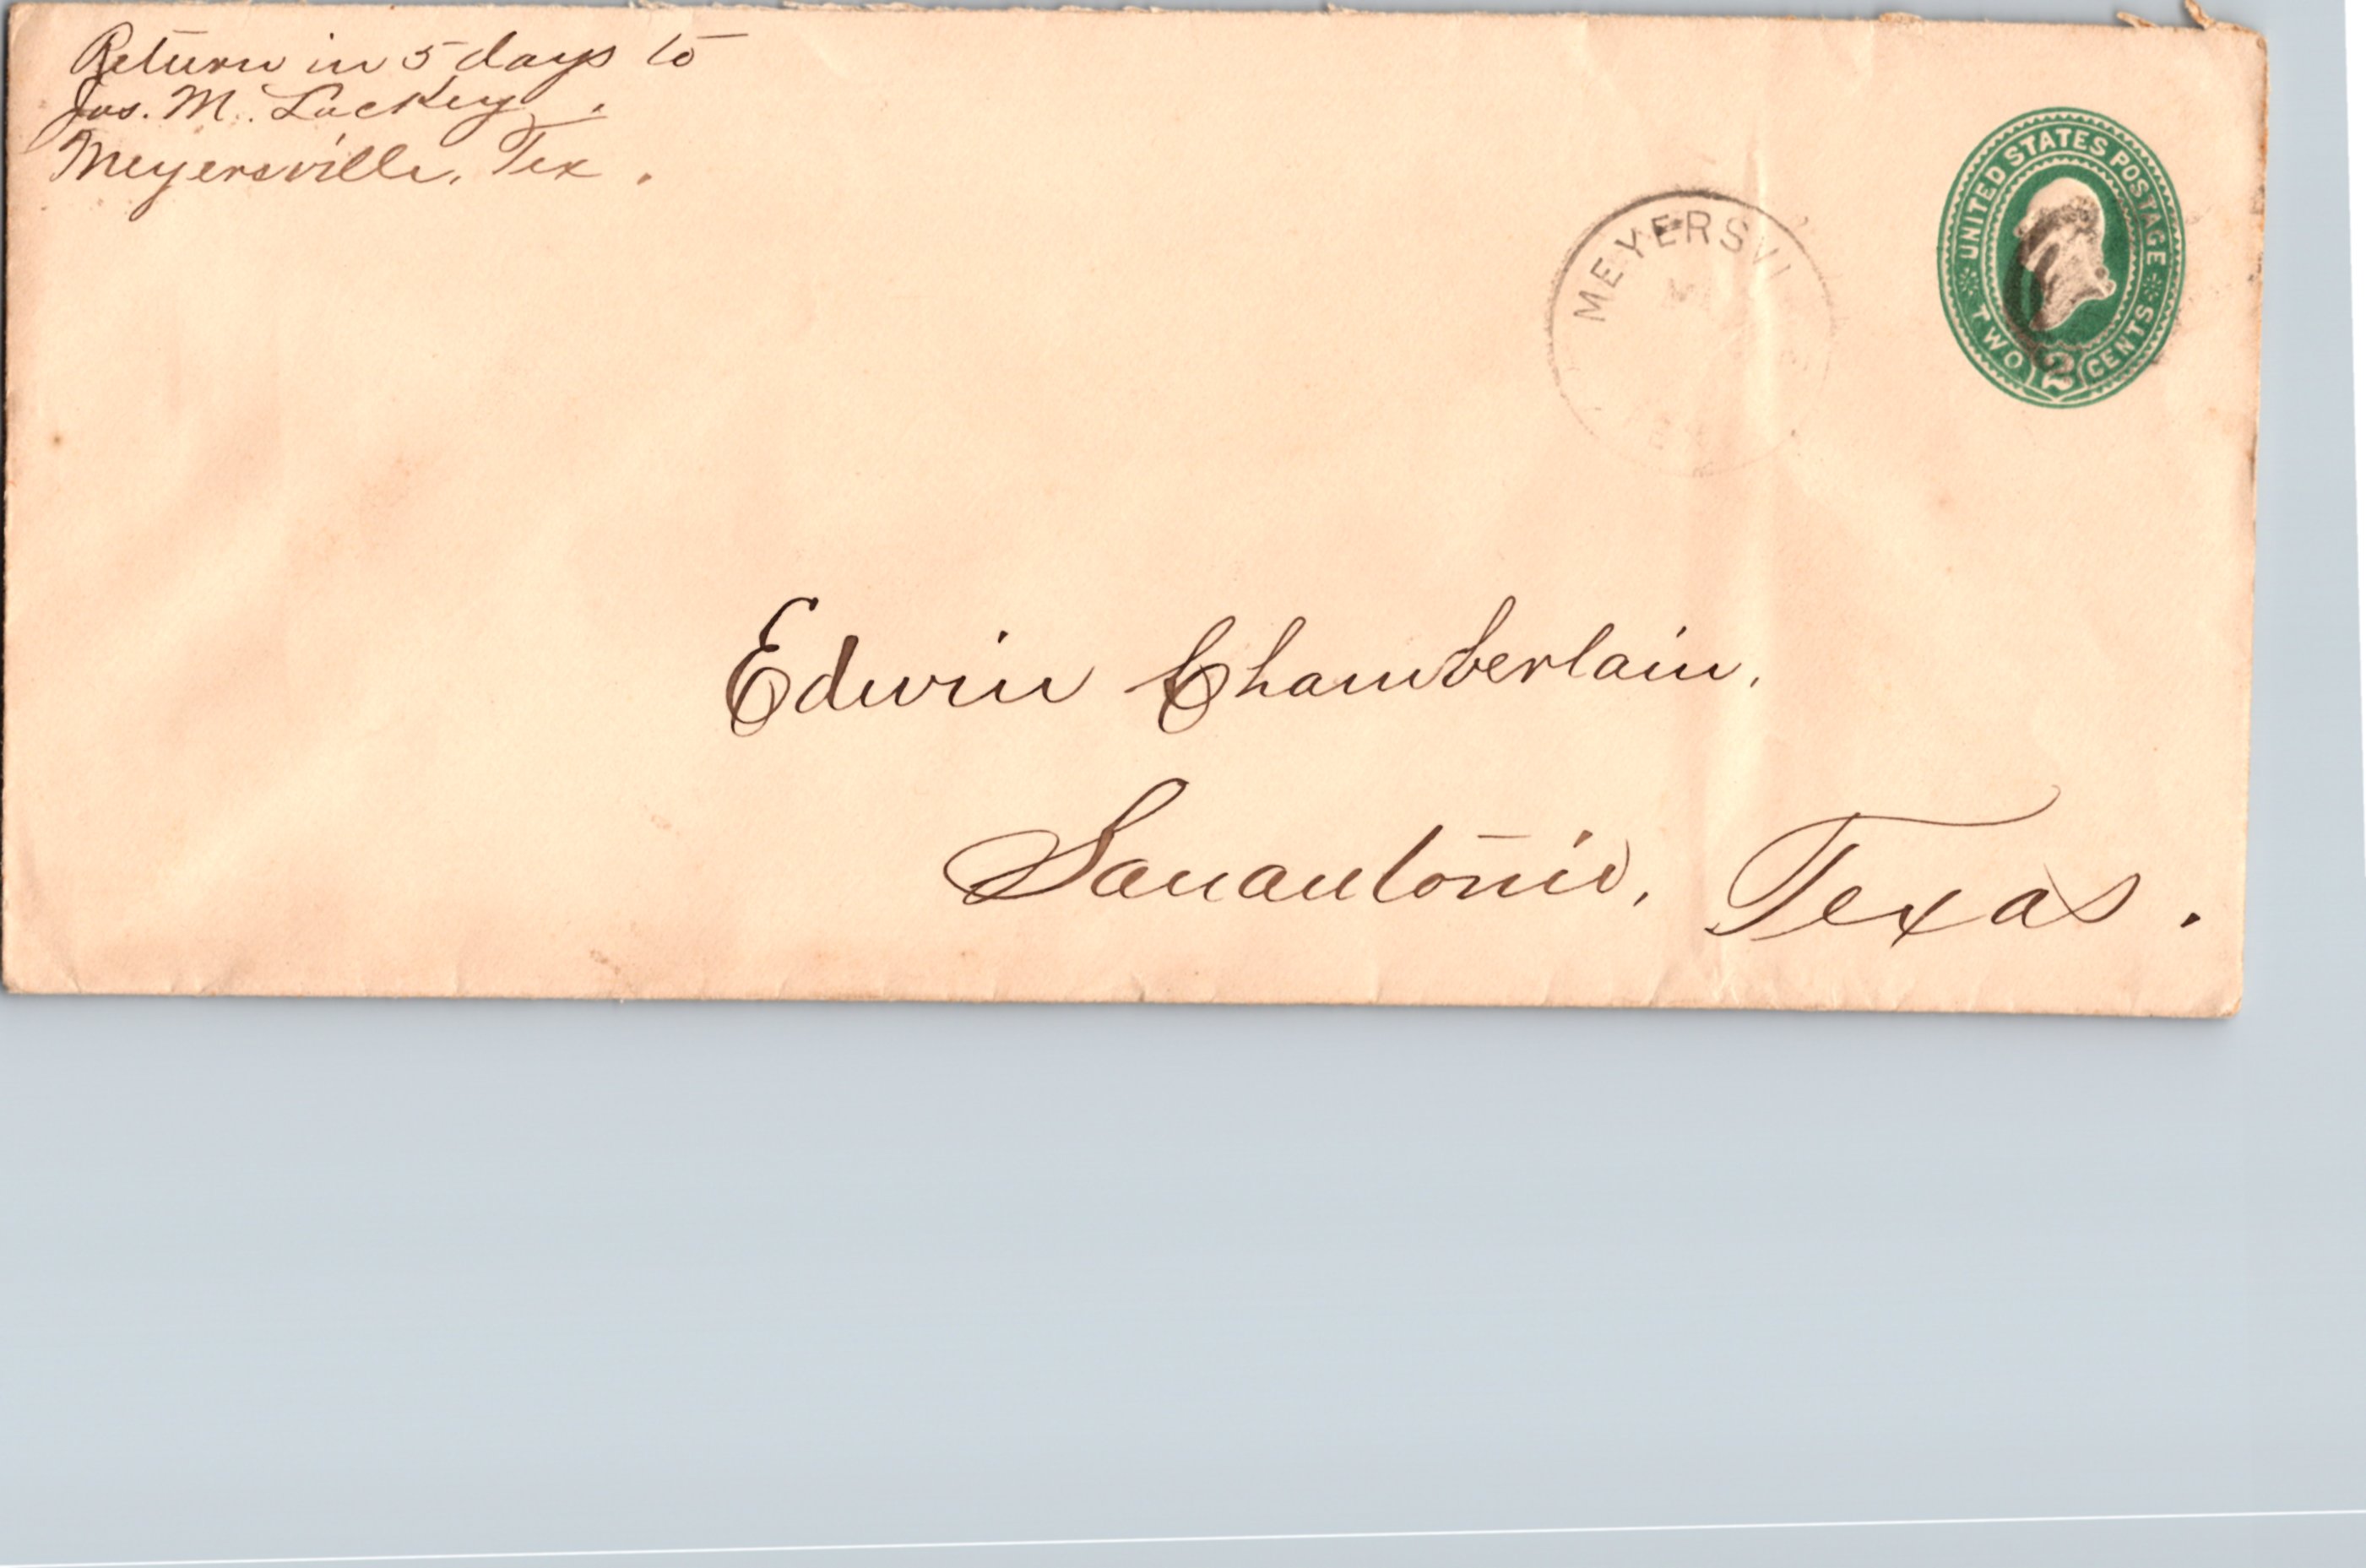 Return in 5 days to
Jas. M. Lackey.
Meyersville, Tex.
MEYERSVI
UNITED STATES POSTAGE
TWO 2 CENTS
Edwin Chamberlain,
Sanantonio, Texas.